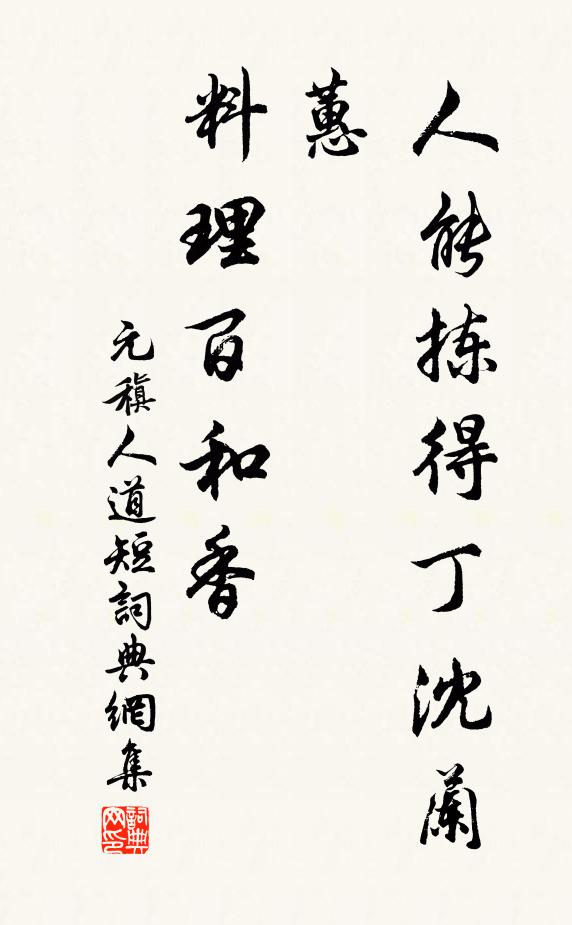 人能揀得丁沈蘭
蕙
料理百和香
元稹人道短詞典網集
詞典网印